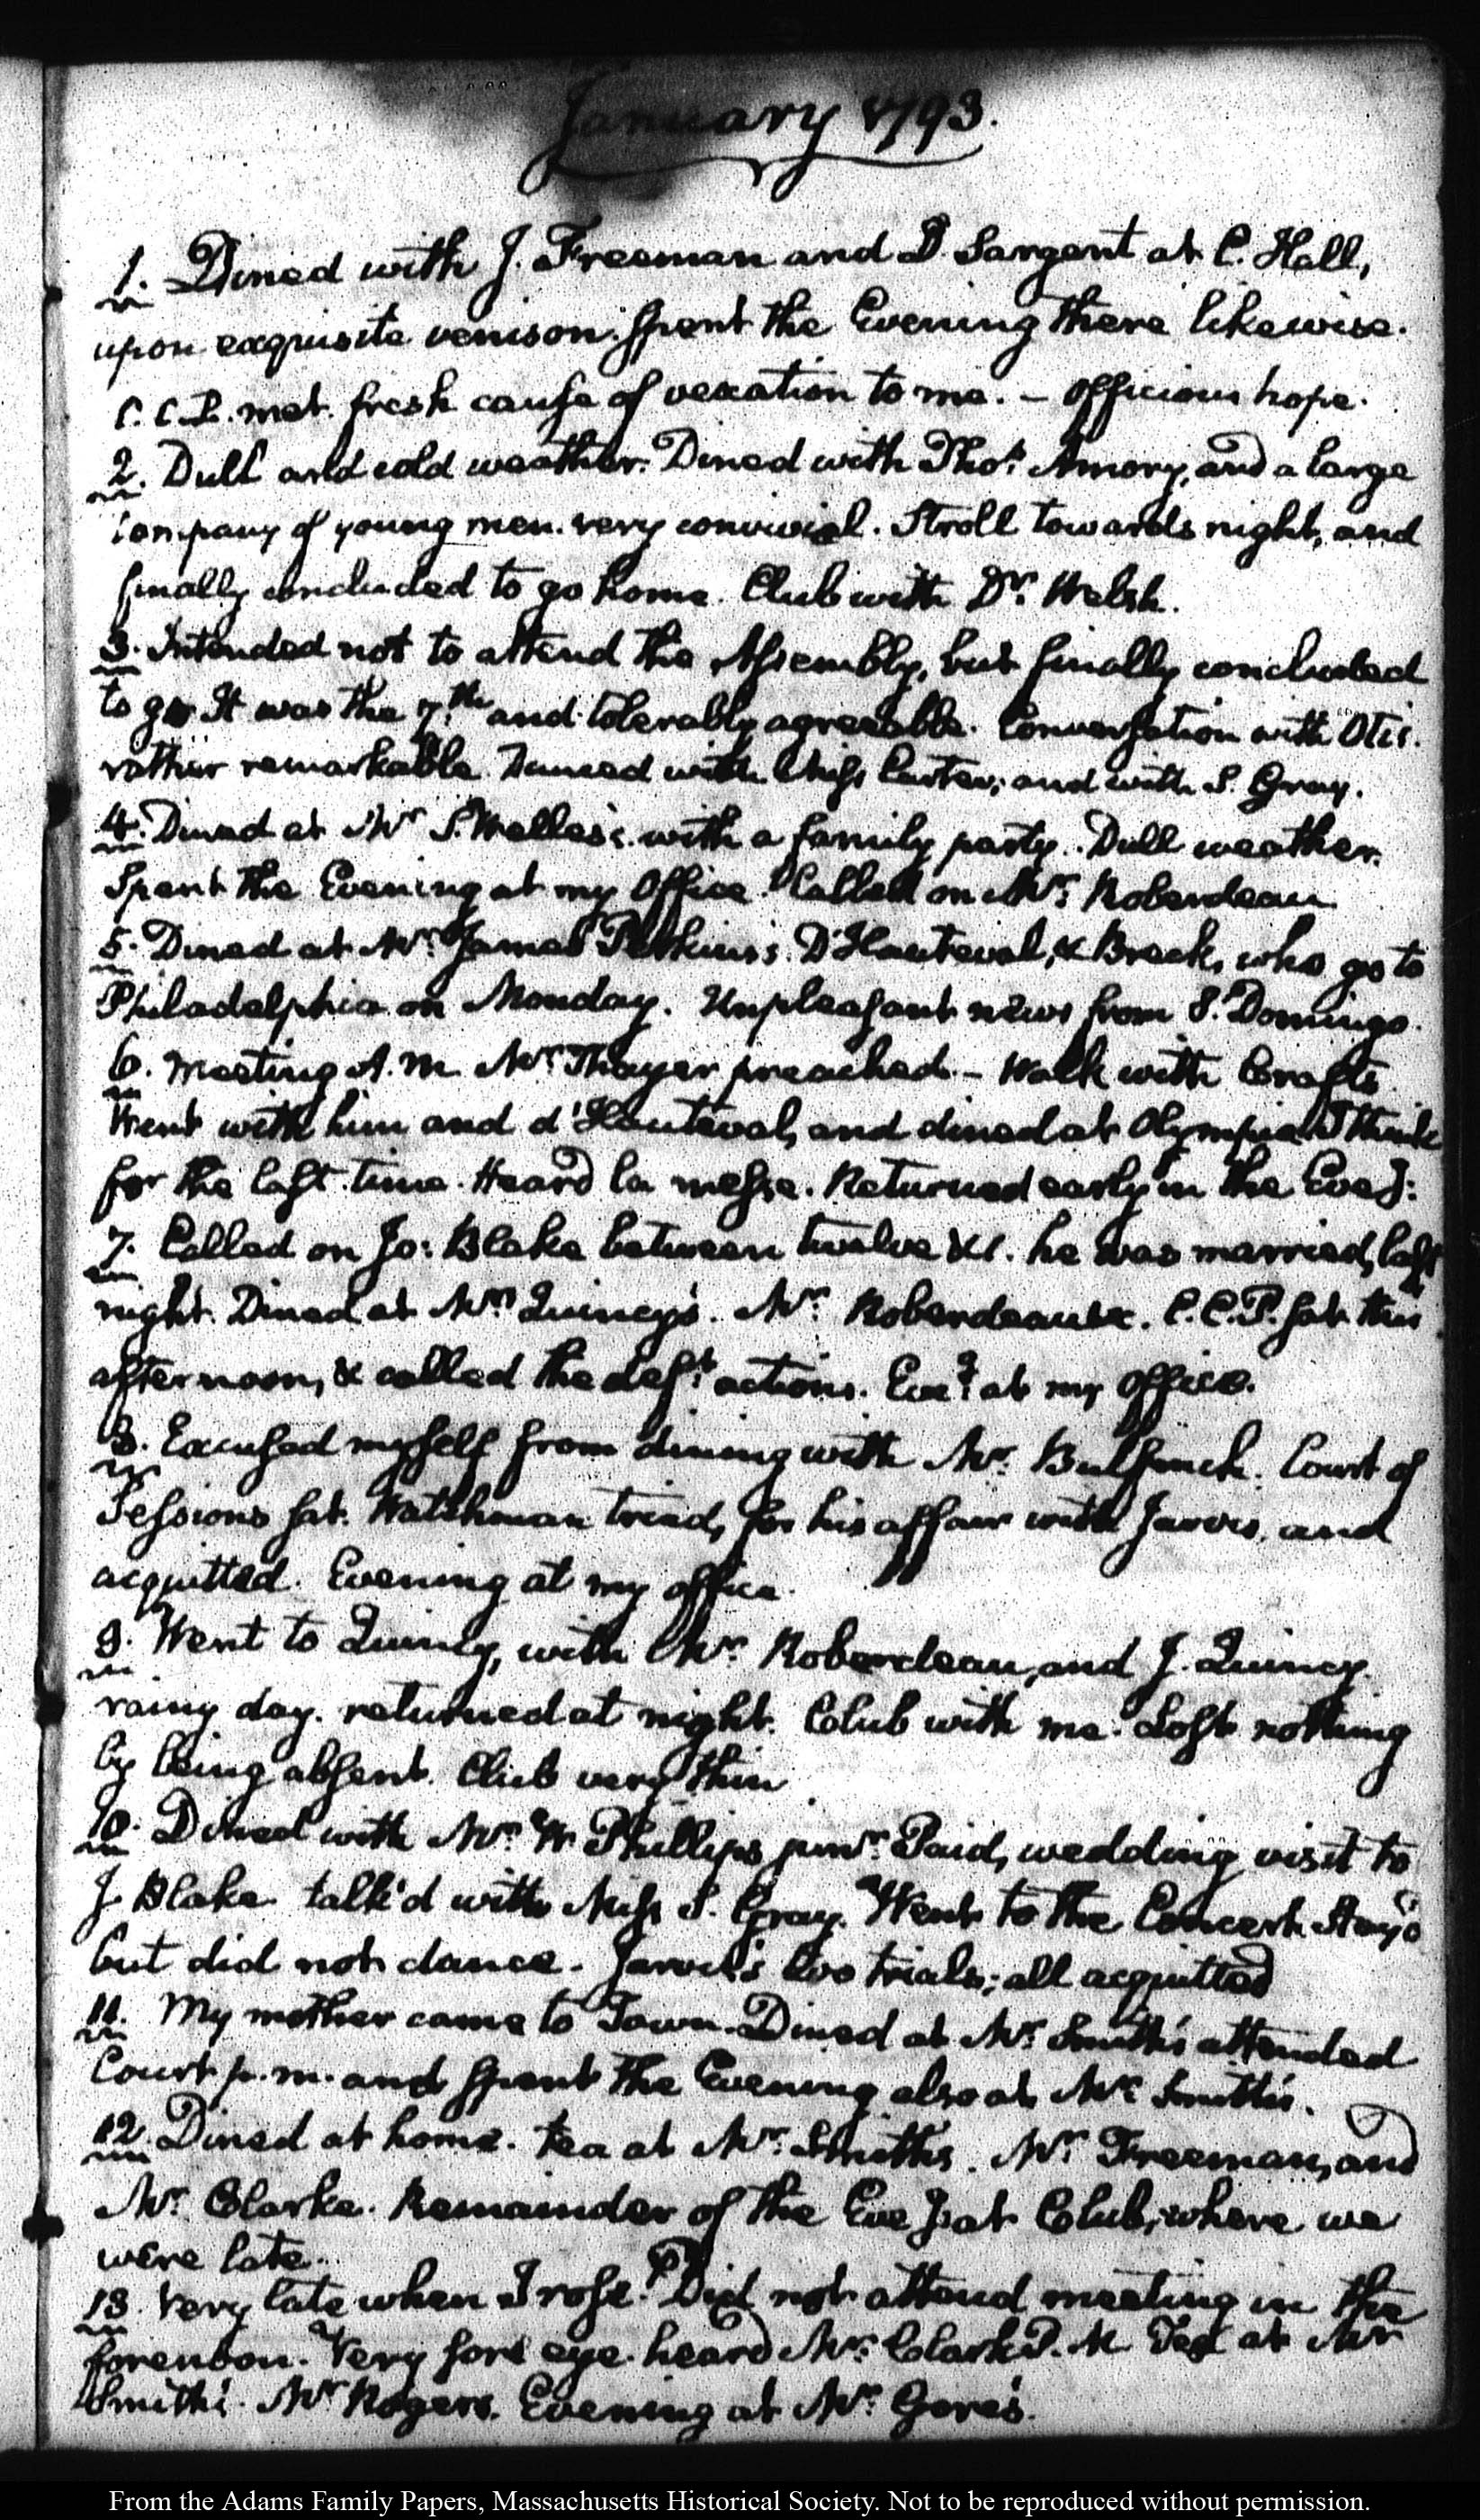 January 1793.
1. Dined with J. Freeman and D. Sargent at C. Hall,
upon exquisite venison. Spent the Evening there likewise.
C. C. P. met. fresh cause of vexation to me. – officious hope.
2. Dull and cold weather. Dined with Thos. Amory, and a large
company of young men. very convivial. Stroll towards night, and
finally concluded to go home. Club with Dr. Welsh.
3. Intended not to attend the Assembly, but finally concluded
to go. It was the 7.th and tolerably agreeable. Conversation with Otis.
rather remarkable. Danced with Miss Carter, and with S. Gray.
4. Dined at Mr. S. Welles's. with a family party. Dull weather.
Spent the Evening at my Office. Called on Mr. Roberdeau
5. Dined at Mr. James Perkins's. D'Hauteval, & Breck, who go to
Philadelphia on Monday. Unpleasant news from S. Domingo.
6. Meeting A.M. Mr. Thayer preached. – Walk with Crafts.
Went with him and d'Hauteval, and dined at Olympia I think
for the last time. Heard la messe. Returned early in the Eveg:
7. Called on Jo: Blake between twelve & 1. he was married, last
night. Dined at Mrs. Quincy's. Mr. Roberdeau &c. C.C.P. sat this
afternoon, & called the actions. Eveg. at my office.
8. Excused myself from dining with Mr. Bulfinch. Court of
Sessions sat. Watchman tried, for his affair with Jarvis, and
acquitted. Evening at my office.
9. Went to Quincy, with Mr. Roberdeau, and J. Quincy
rainy day. returned at night. Club with me. Lost nothing
by being absent. Club very thin.
10. Dined with Mr. W. Phillips junr. Paid, wedding visit to
J. Blake. talk'd with Miss S. Gray. Went to the Concert.
but did not dance. Jarvis's two trials; all acquitted
11. My mother came to Town. Dined at Mr. Smith's attended
Court p.m. and spent the Evening also at Mr. Smith's.
12. Dined at home. tea at Mr. Smith's. Mr. Freeman, and
Mr. Clarke. Remainder of the Eveg at Club, where we
were late.
13. Very late when I rose. Did not attend meeting in the
forenoon. Very sore eye. heard Mr. Clark P.M. Tea at Mr
Smith's. Mr. Rogers. Evening at Mr. Gore's.
From the Adams Family Papers, Massachusetts Historical Society. Not to be reproduced without permission.